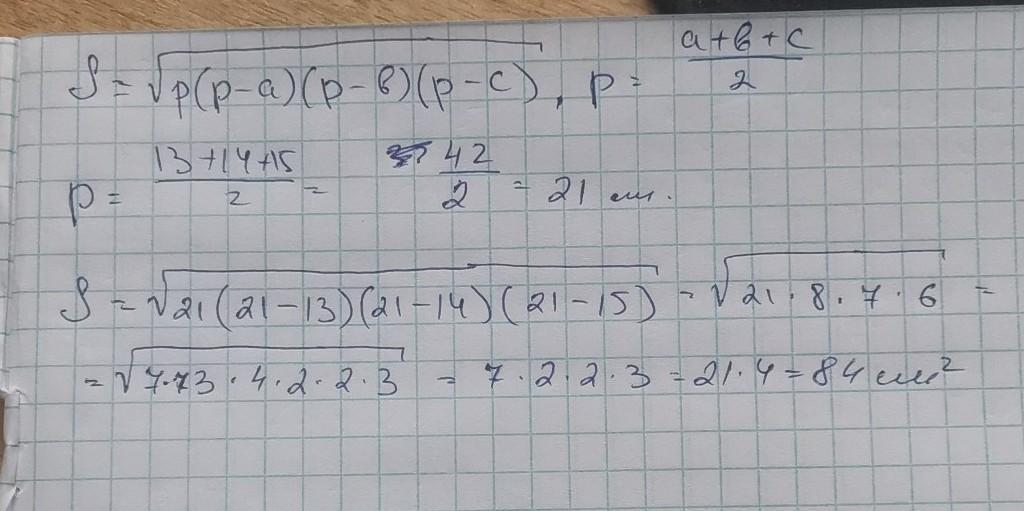 S = √p(p-a)(p-в)(p-c), p = a+в+c/2
p = 13+14+15/2 = 42/2 = 21 см.
S = √21(21-13)(21-14)(21-15) = √21·8·7·6 =
= √7·73·4·2·2·3 = 7·2·2·3 = 21·4 = 84 см²